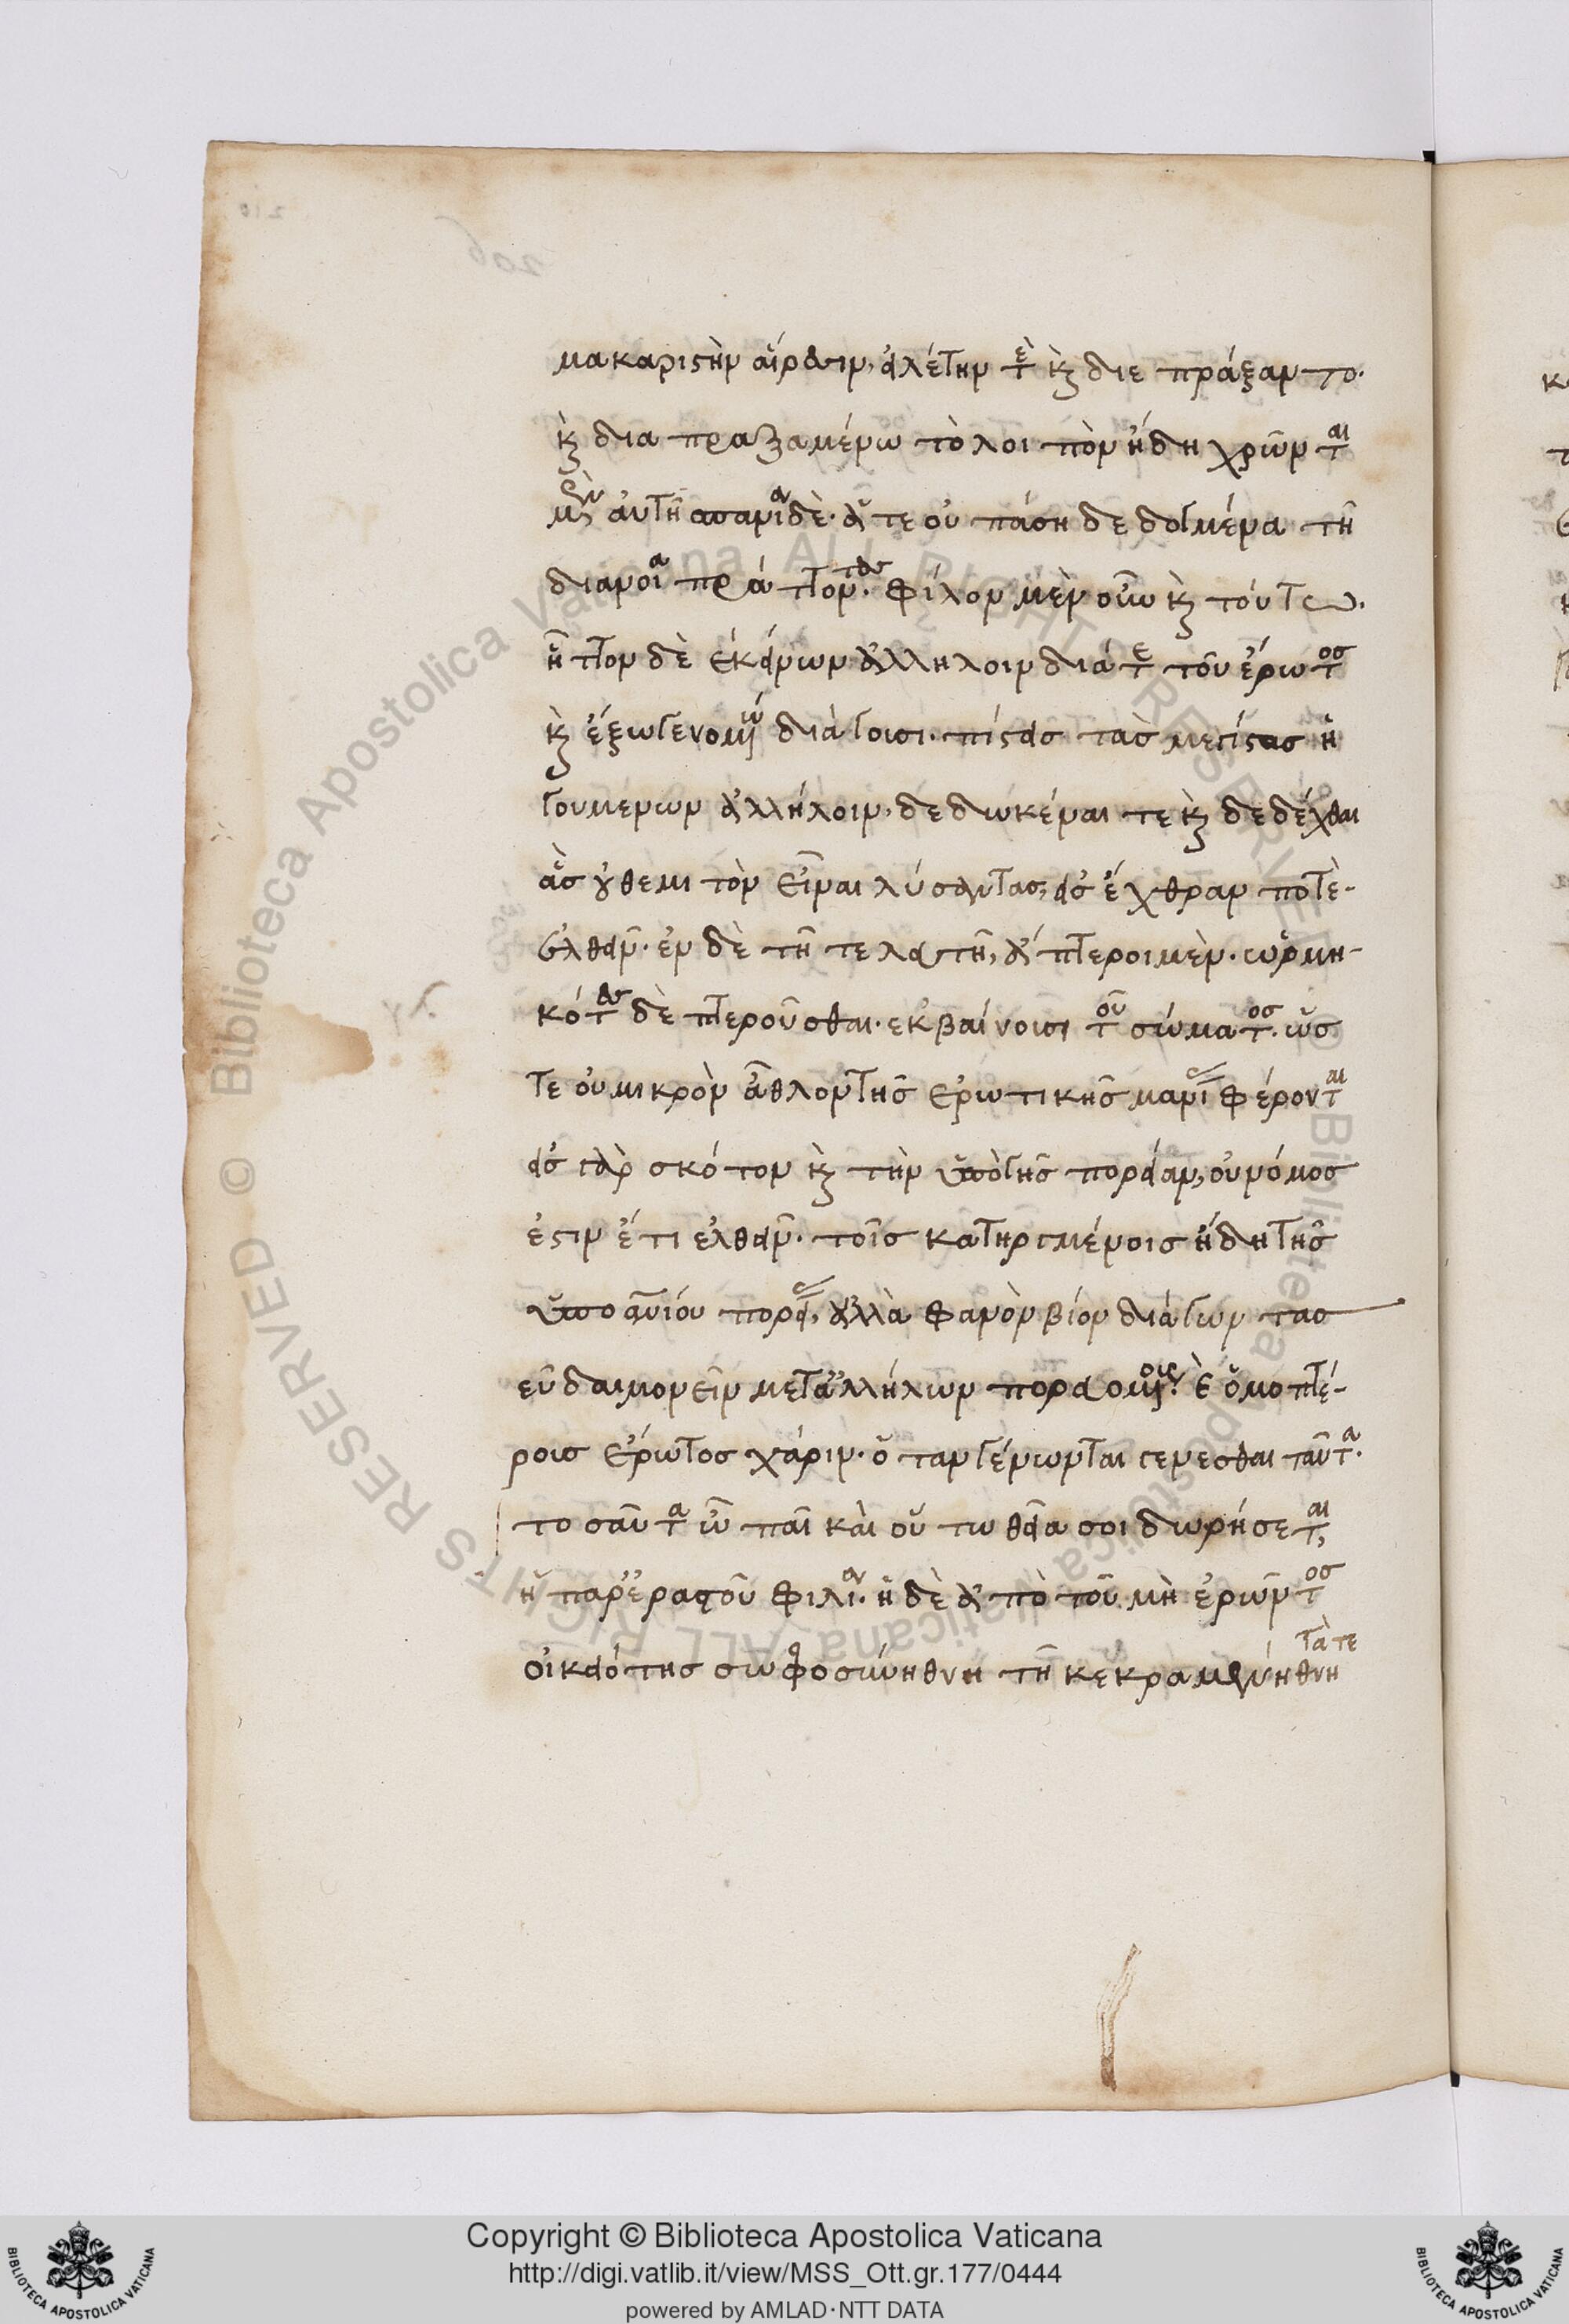 μακαριστὴν αἵρεσιν, εἱλέτην τὲ καὶ διε πράξαντο.
καὶ δια πραξαμένω τὸ λοι πὸν ἤδη χρῶνται
μὲν αὐτῆ σπανία δὲ. ἅτε οὐ πάση δεδογμένα τῆ
διανοία πράττοντες. φίλον μὲν οὖν καὶ τούτω.
ἧττον δὲ ἐκείνων ἀλλήλοιν διά τε τοῦ ἔρωτος
καὶ ἔξω γενομένω διάγουσι. πίστεις τὰς μεγίστας ἡ
γουμένων ἀλλήλοιν. δεδωκέναι τε καὶ δεδέχθαι
ἃς οὐ θεμιτὸν εἶναι λύσαντας, εἰς ἔχθραν ποτὲ
ἐλθεῖν. ἐν δὲ τῆ τελευτῆ, ἄπτεροι μὲν. ὡρμη-
κότες δὲ πτεροῦσθαι. ἐκβαίνουσι τοῦ σώματος. ὥσ
τε οὐ μικρὸν ἆθλον τῆς ἐρωτικῆς μανίας φέρονται
εἰς γὰρ σκότον καὶ τὴν ὑπὸ γῆς πορείαν, οὐ νόμος
ἐστιν ἔτι ἐλθεῖν. τοῖς κατηργμένοις ἤδη τῆς
ὑπουρανίου πορείας, ἀλλὰ φανὸν βίον διάγοντας
εὐδαιμονεῖν μετ' ἀλλήλων πορευομένους. καὶ ὁμοπτέ-
ρους ἔρωτος χάριν. ὅταν γένωνται γενέσθαι ταῦτα.
τοσαῦτα ὦ παῖ καὶ οὕτω θεῖα σοι δωρήσεται,
ἡ παρ' ἐραστοῦ φιλία. ἡ δὲ ἀπὸ τοῦ μὴ ἐρῶντος
οἰκειότης σωφροσύνη θνητῆ κεκραμένη θνητὰ τε
Copyright © Biblioteca Apostolica Vaticana
http://digi.vatlib.it/view/MSS_Ott.gr.177/0444
powered by AMLAD·NTT DATA